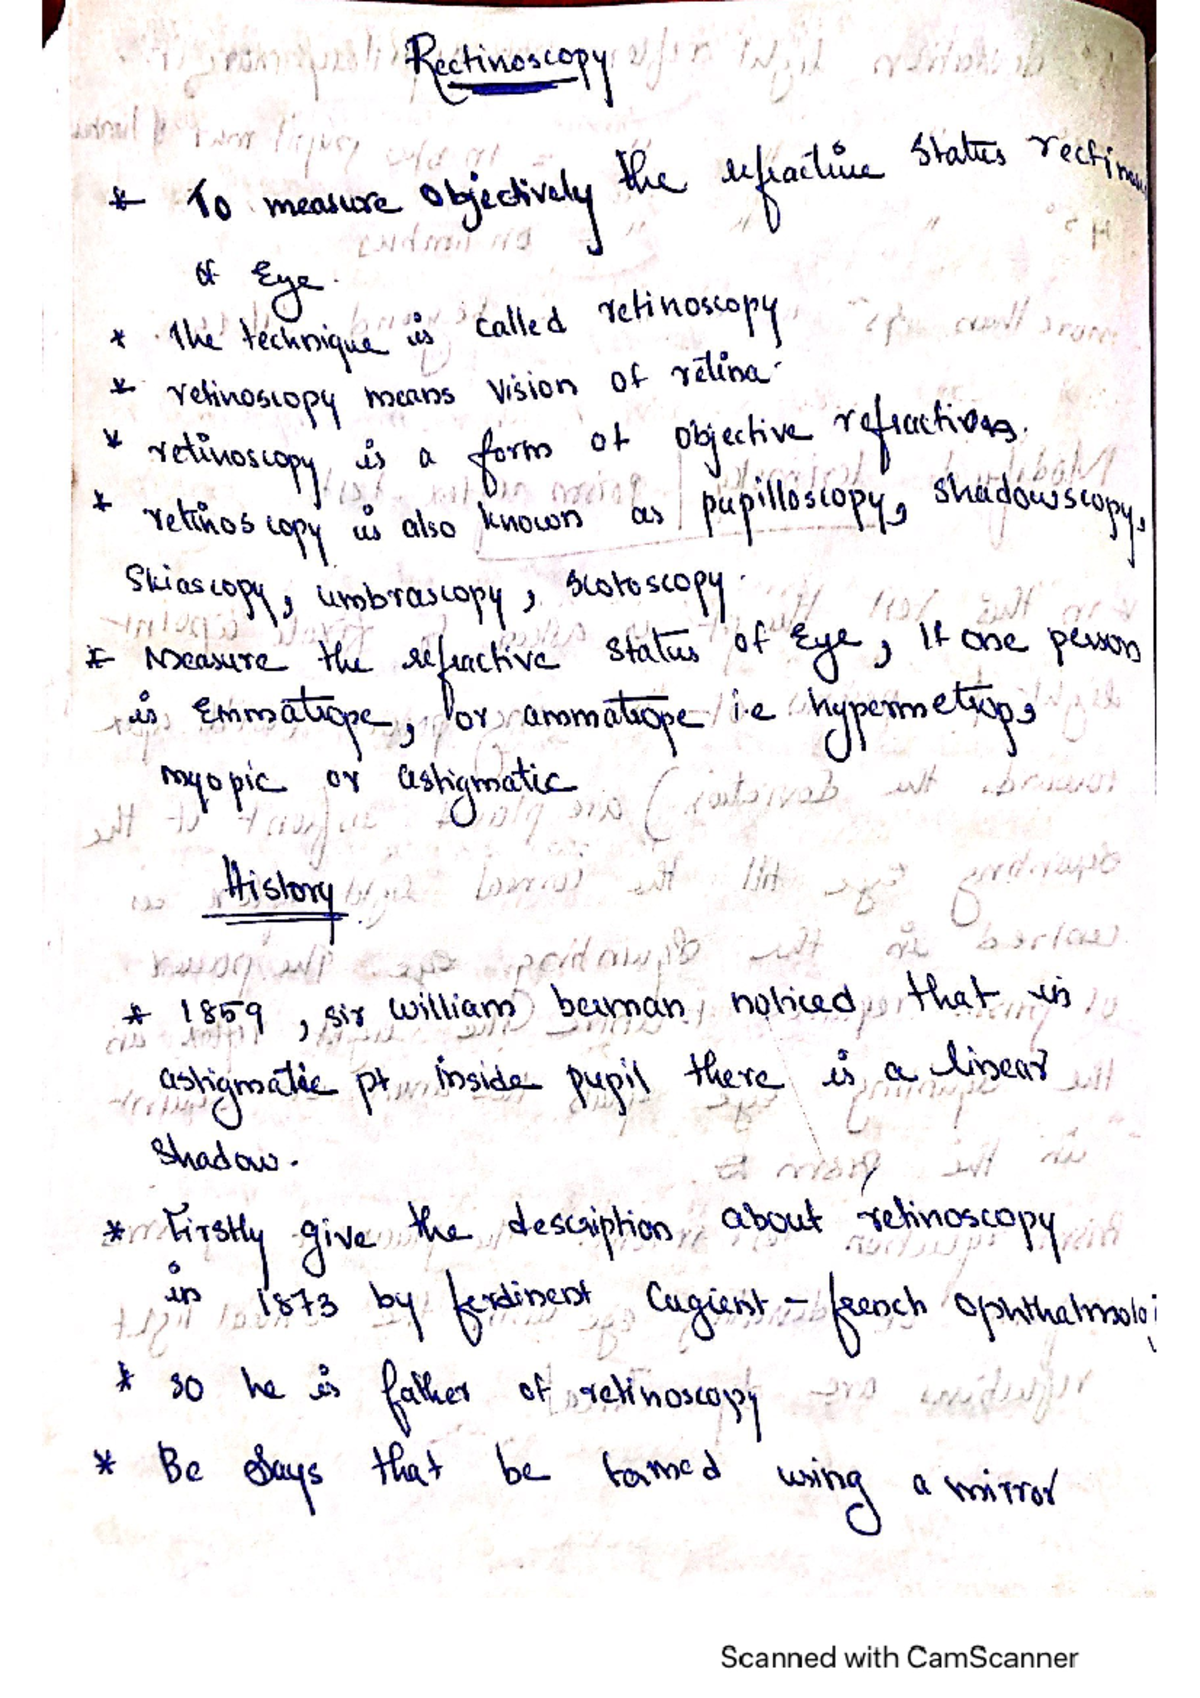 Rectinoscopy
* To measure objectively the refractive status
of Eye.
* The technique is called retinoscopy
* retinoscopy means vision of retina.
* retinoscopy is a form of objective refractions.
* retinoscopy is also known as pupilloscopy, shadowscopy,
Skiascopy, umbrascopy, scotoscopy.
* Measure the refractive status of Eye, if one person
is Emmatrope, or ammatrope i.e hypermetrop,
myopic or astigmatic
History
* 1859, sir william beuman noticed that in
astigmatic pt inside pupil there is a linear
shadow.
* Firstly give the description about retinoscopy
in 1873 by ferdinent Cugient - french ophthalmologi
* so he is father of retinoscopy
* Be says that be tamed using a mirror
Scanned with CamScanner